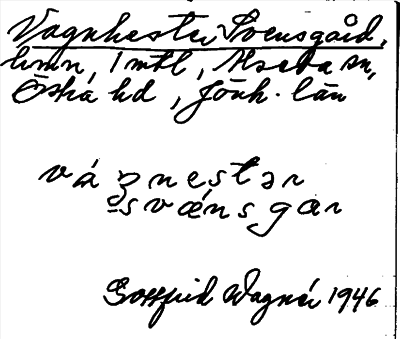 Vagnhester Svensgård,
hmn, 1 mtl, Alseda sn,
Östra hd, Jönk. län
vágnestər
svǽnsgar
Gottfrid Wagnér 1946